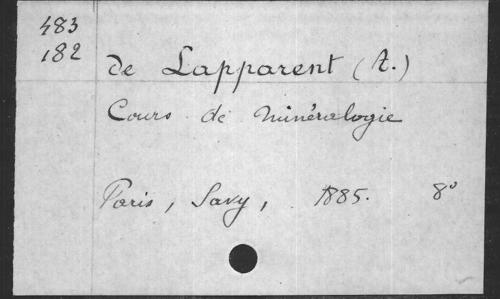 483
182
de Lapparent (A.)
Cours de minéralogie
Paris, Savy, 1885. 8°